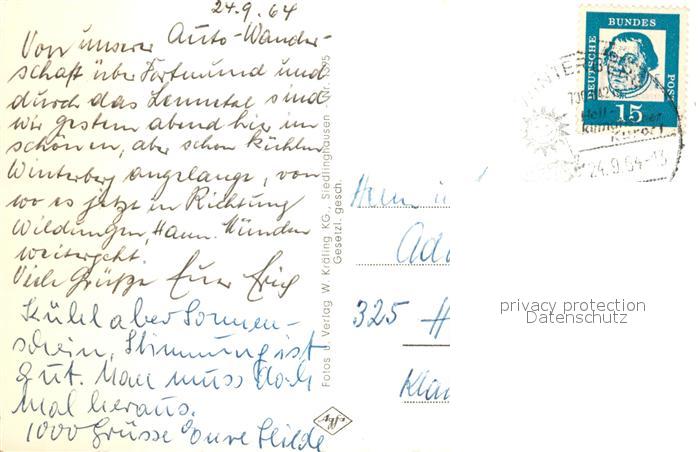 24.9.64
Von unserer Auto-Wander-
schaft über Dortmund und
durch das Lennetal sind
wir gestern abend hier im
schönen, aber schon kühlen
Winterberg angelangt, von
wo es jetzt in Richtung
Wildungen, Hann. Münden
weitergeht.
Viele Grüße Euer Erich
Kühl aber Sonnen-
schein, Stimmung ist
gut. Man muss doch
mal heraus.
1000 Grüsse Eure Hilde
Fotos u. Verlag W. Kräling KG., Siedlinghausen Nr. 1095
Gesetzl. gesch.
Agfa
DEUTSCHE
BUNDES
POST
15
WINTERB
Heil
klimatischer
Kurort
24.9.64-13
Herrn u
Ad
325 H
Kla
privacy protection
Datenschutz